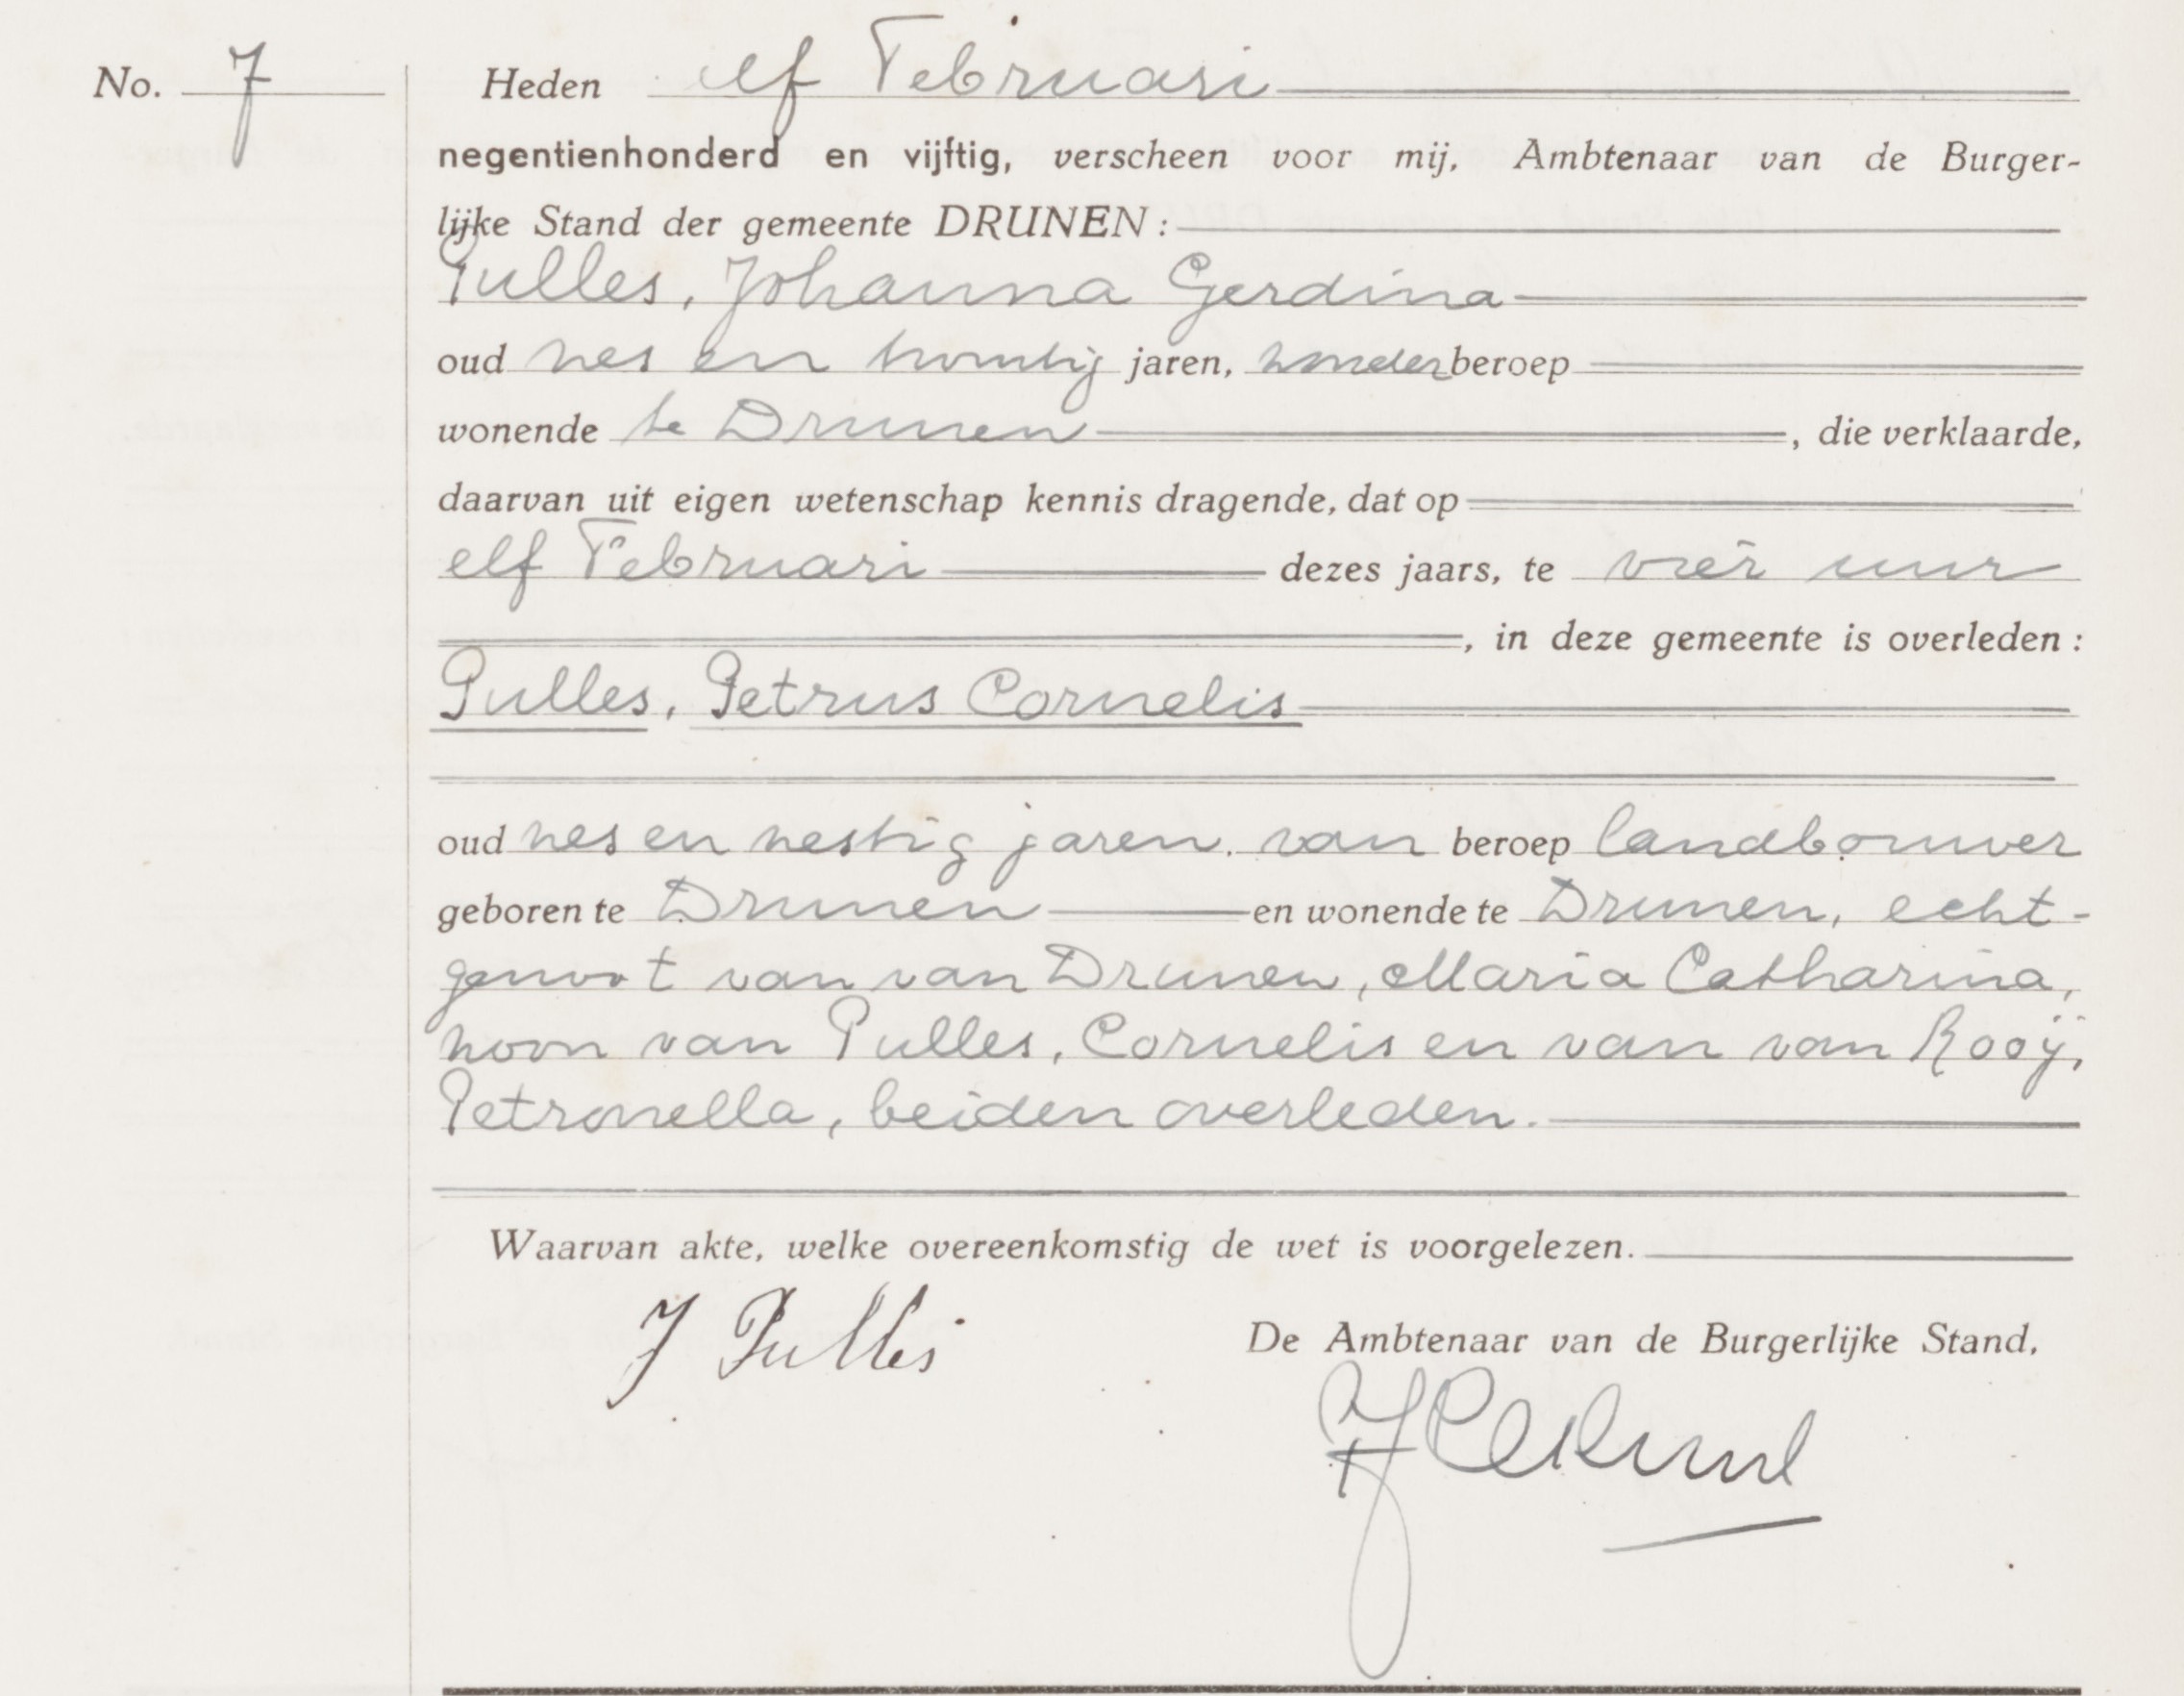 No. 7
Heden elf Februari
negentienhonderd en vijftig, verscheen voor mij, Ambtenaar van de Burger-
lijke Stand der gemeente DRUNEN:
Pulles, Johanna Gerdina
oud zes en twintig jaren, zonder beroep
wonende te Drunen, die verklaarde,
daarvan uit eigen wetenschap kennis dragende, dat op
elf Februari dezes jaars, te vier uur
, in deze gemeente is overleden:
Pulles, Petrus Cornelis
oud zes en zestig jaren, van beroep landbouwer
geboren te Drunen en wonende te Drunen, echt-
genoot van van Drunen, Maria Catharina,
zoon van Pulles, Cornelis en van van Rooÿ,
Petronella, beiden overleden.
Waarvan akte, welke overeenkomstig de wet is voorgelezen.
J Pulles
De Ambtenaar van de Burgerlijke Stand,